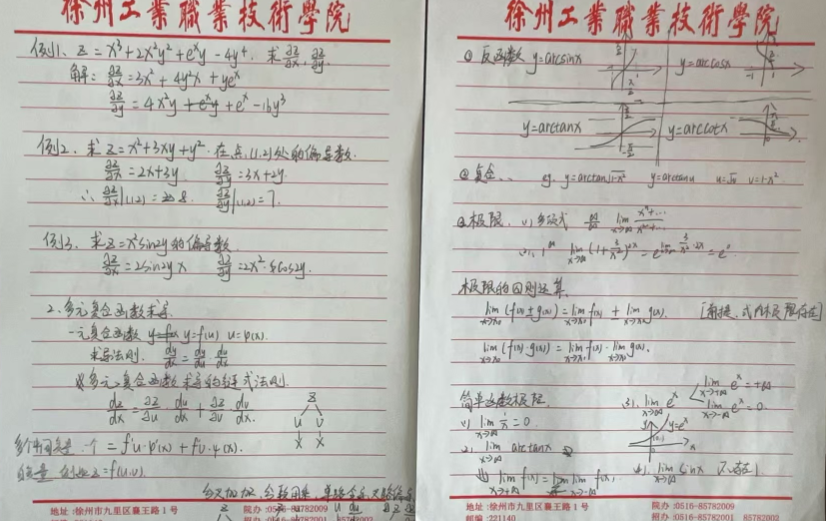 徐州工業職業技術學院
例1、z=x³+2x²y²+eˣy-4y⁴. 求∂z/∂x, ∂z/∂y.
解: ∂z/∂x=3x²+4y²x+yeˣ
∂z/∂y=4x²y+eˣ-16y³
例2、求z=x²+3xy+y².在点(1,2)处的偏导数.
∂z/∂x=2x+3y ∂z/∂y=3x+2y.
∴ ∂z/∂x|(1,2)=8. ∂z/∂y|(1,2)=7.
例3、求z=x²sin2y的偏导数
∂z/∂x=2sin2y x ∂z/∂y=2x²·cos2y.
2、多元复合函数求导.
一元复合函数 y=f(u) u=φ(x).
求导法则. dy/dx=dy/du·du/dx
多元复合函数求导的链式法则.
dz/dx=∂z/∂u·du/dx+∂z/∂v·dv/dx.
z
u v
x x
=f'u·φ'(x)+f'v·ψ'(x).
z=f(u,v).
地址:徐州市九里区襄王路1号 院办:0516-85782009
徐州工業職業技術學院
① 反函数 y=arcsinx y=arccosx
y=arctanx y=arccotx
②复合 eg. y=arctan√1-x² y=arctanu u=√v v=1-x²
③极限. (1)多项式 lim x→∞ xⁿ+…/xᵐ+…
极限的四则运算.
lim x→x₀ (f(x)±g(x))=lim x→x₀ f(x)+lim x→x₀ g(x).
lim x→x₀ (f(x)·g(x))=lim x→x₀ f(x)·lim x→x₀ g(x).
简单函数极限. (3). lim x→∞ eˣ lim x→+∞ eˣ=+∞
lim x→-∞ eˣ=0.
(1) lim x→∞ 1/x=0. y=eˣ
(2) lim x→∞ arctanx
(4). lim x→∞ sinx 不存在
地址:徐州市九里区襄王路1号 院办:0516-85782009
邮编:221140 招办:0516-85782001 85782002